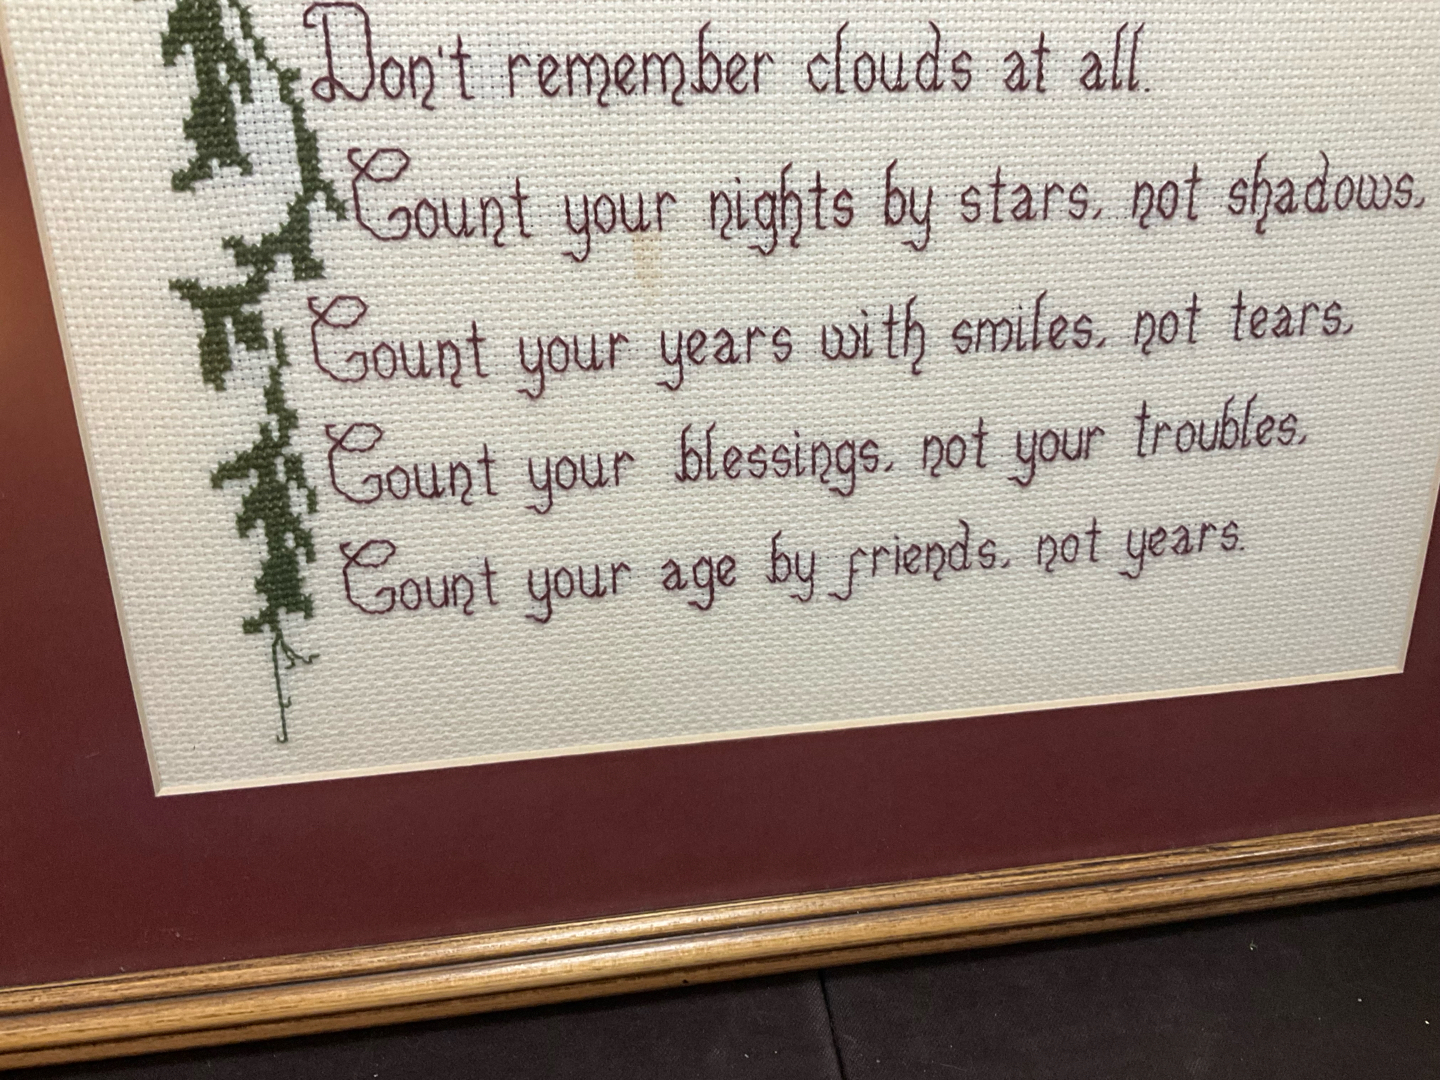 Don't remember clouds at all.
Count your nights by stars, not shadows,
Count your years with smiles, not tears,
Count your blessings, not your troubles,
Count your age by friends, not years.